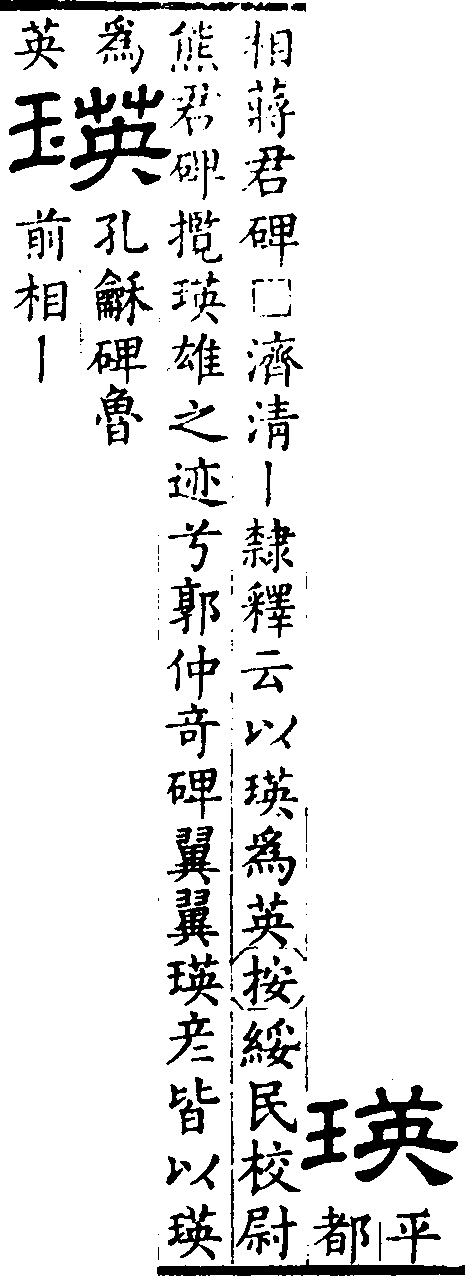 瑛
平
都
相蔣君碑□濟清丨隸釋云以瑛爲英按綏民校尉
熊君碑攬瑛雄之迹兮郭仲奇碑翼翼瑛彦皆以瑛
爲
英
瑛
孔龢碑魯
前相丨